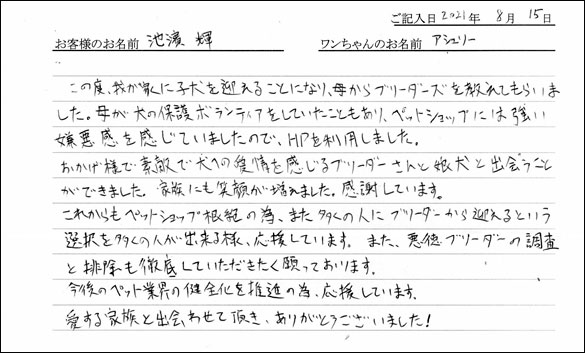 ご記入日 2021年 8月 15日
お客様のお名前 池濱 輝 ワンちゃんのお名前 アシュリー
この度、我が家に子犬を迎えることになり、母からブリーダーズを教えてもらいま
した。母が犬の保護ボランティアをしていたこともあり、ペットショップには強い
嫌悪感を感じていましたので、HPを利用しました。
おかげ様で素敵で犬への愛情を感じるブリーダーさんと娘犬と出会うこと
ができました。家族にも笑顔が増えました。感謝しています。
これからもペットショップ根絶の為、また多くの人にブリーダーから迎えるという
選択を多くの人が出来る様、応援しています。また、悪徳ブリーダーの調査
と排除も徹底していただきたく願っております。
今後のペット業界の健全化を推進の為、応援しています。
愛する家族と出会わせて頂き、ありがとうございました!